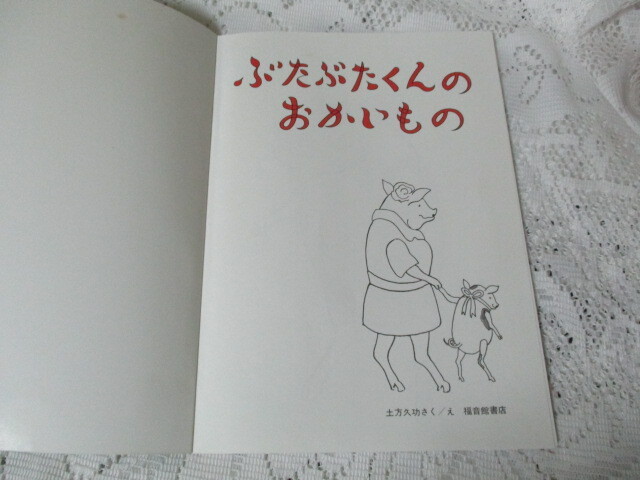 ぶたぶたくんの
おかいもの
土方久功さく／え 福音館書店